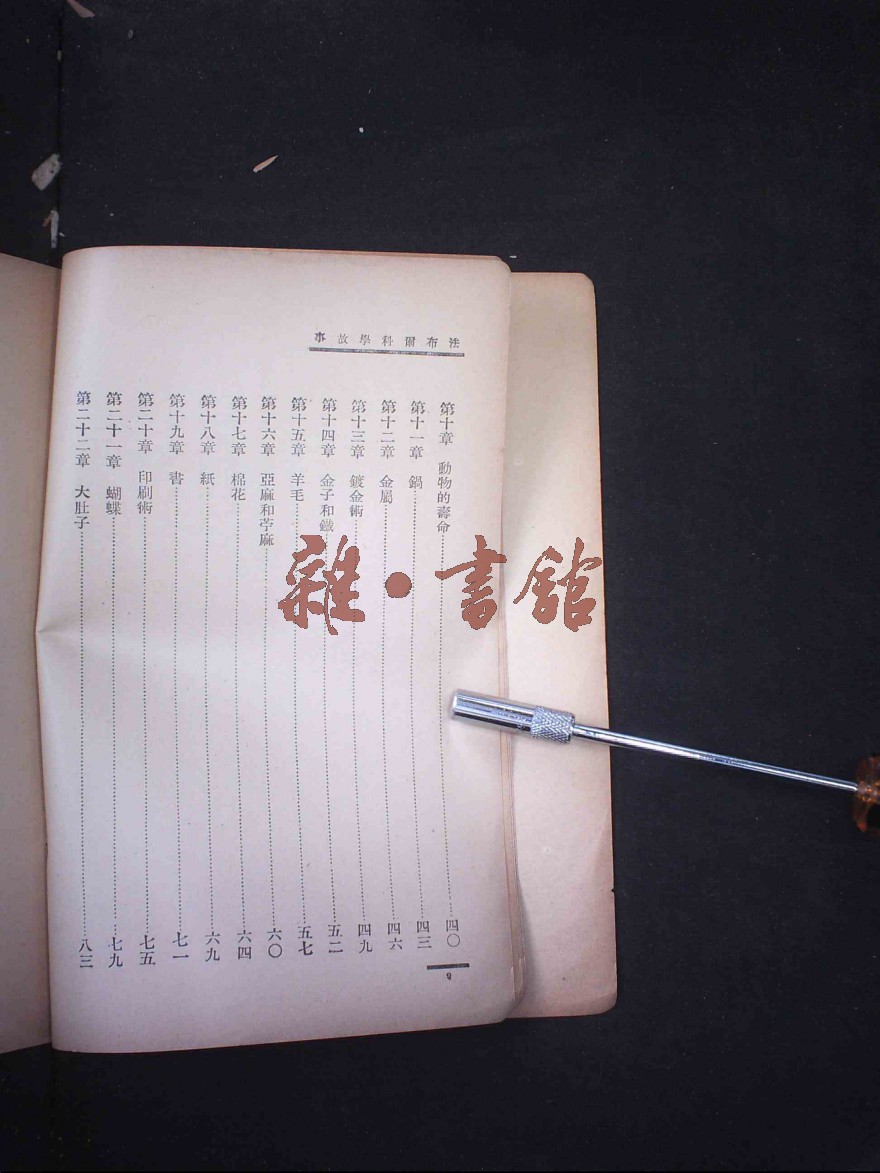 法布爾科學故事
第十章　動物的壽命……四〇
第十一章　鍋……四三
第十二章　金屬……四六
第十三章　鍍金術……四九
第十四章　金子和鐵……五二
第十五章　羊毛……五七
第十六章　亞麻和苧麻……六〇
第十七章　棉花……六四
第十八章　紙……六九
第十九章　書……七一
第二十章　印刷術……七五
第二十一章　蝴蝶……七九
第二十二章　大肚子……八三
雜·書館